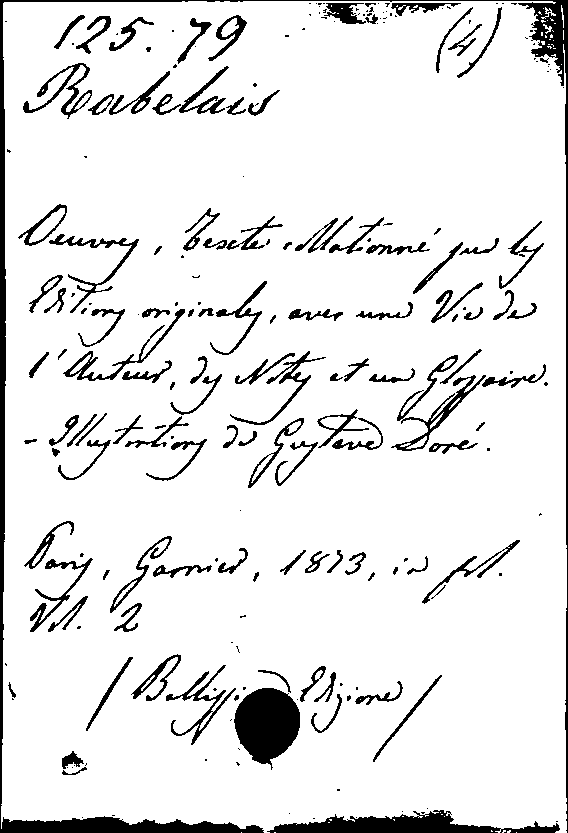 125. 79 (4)
Rabelais
Oeuvres, Texte Mationné sur les
Editions originales, avec une Vie de
l'Auteur, des Notes et un Glossaire.
- Illustrations de Gustave Doré.
Paris, Garnier, 1873, in fol.
Vol. 2
/ Bellissi Edizione /